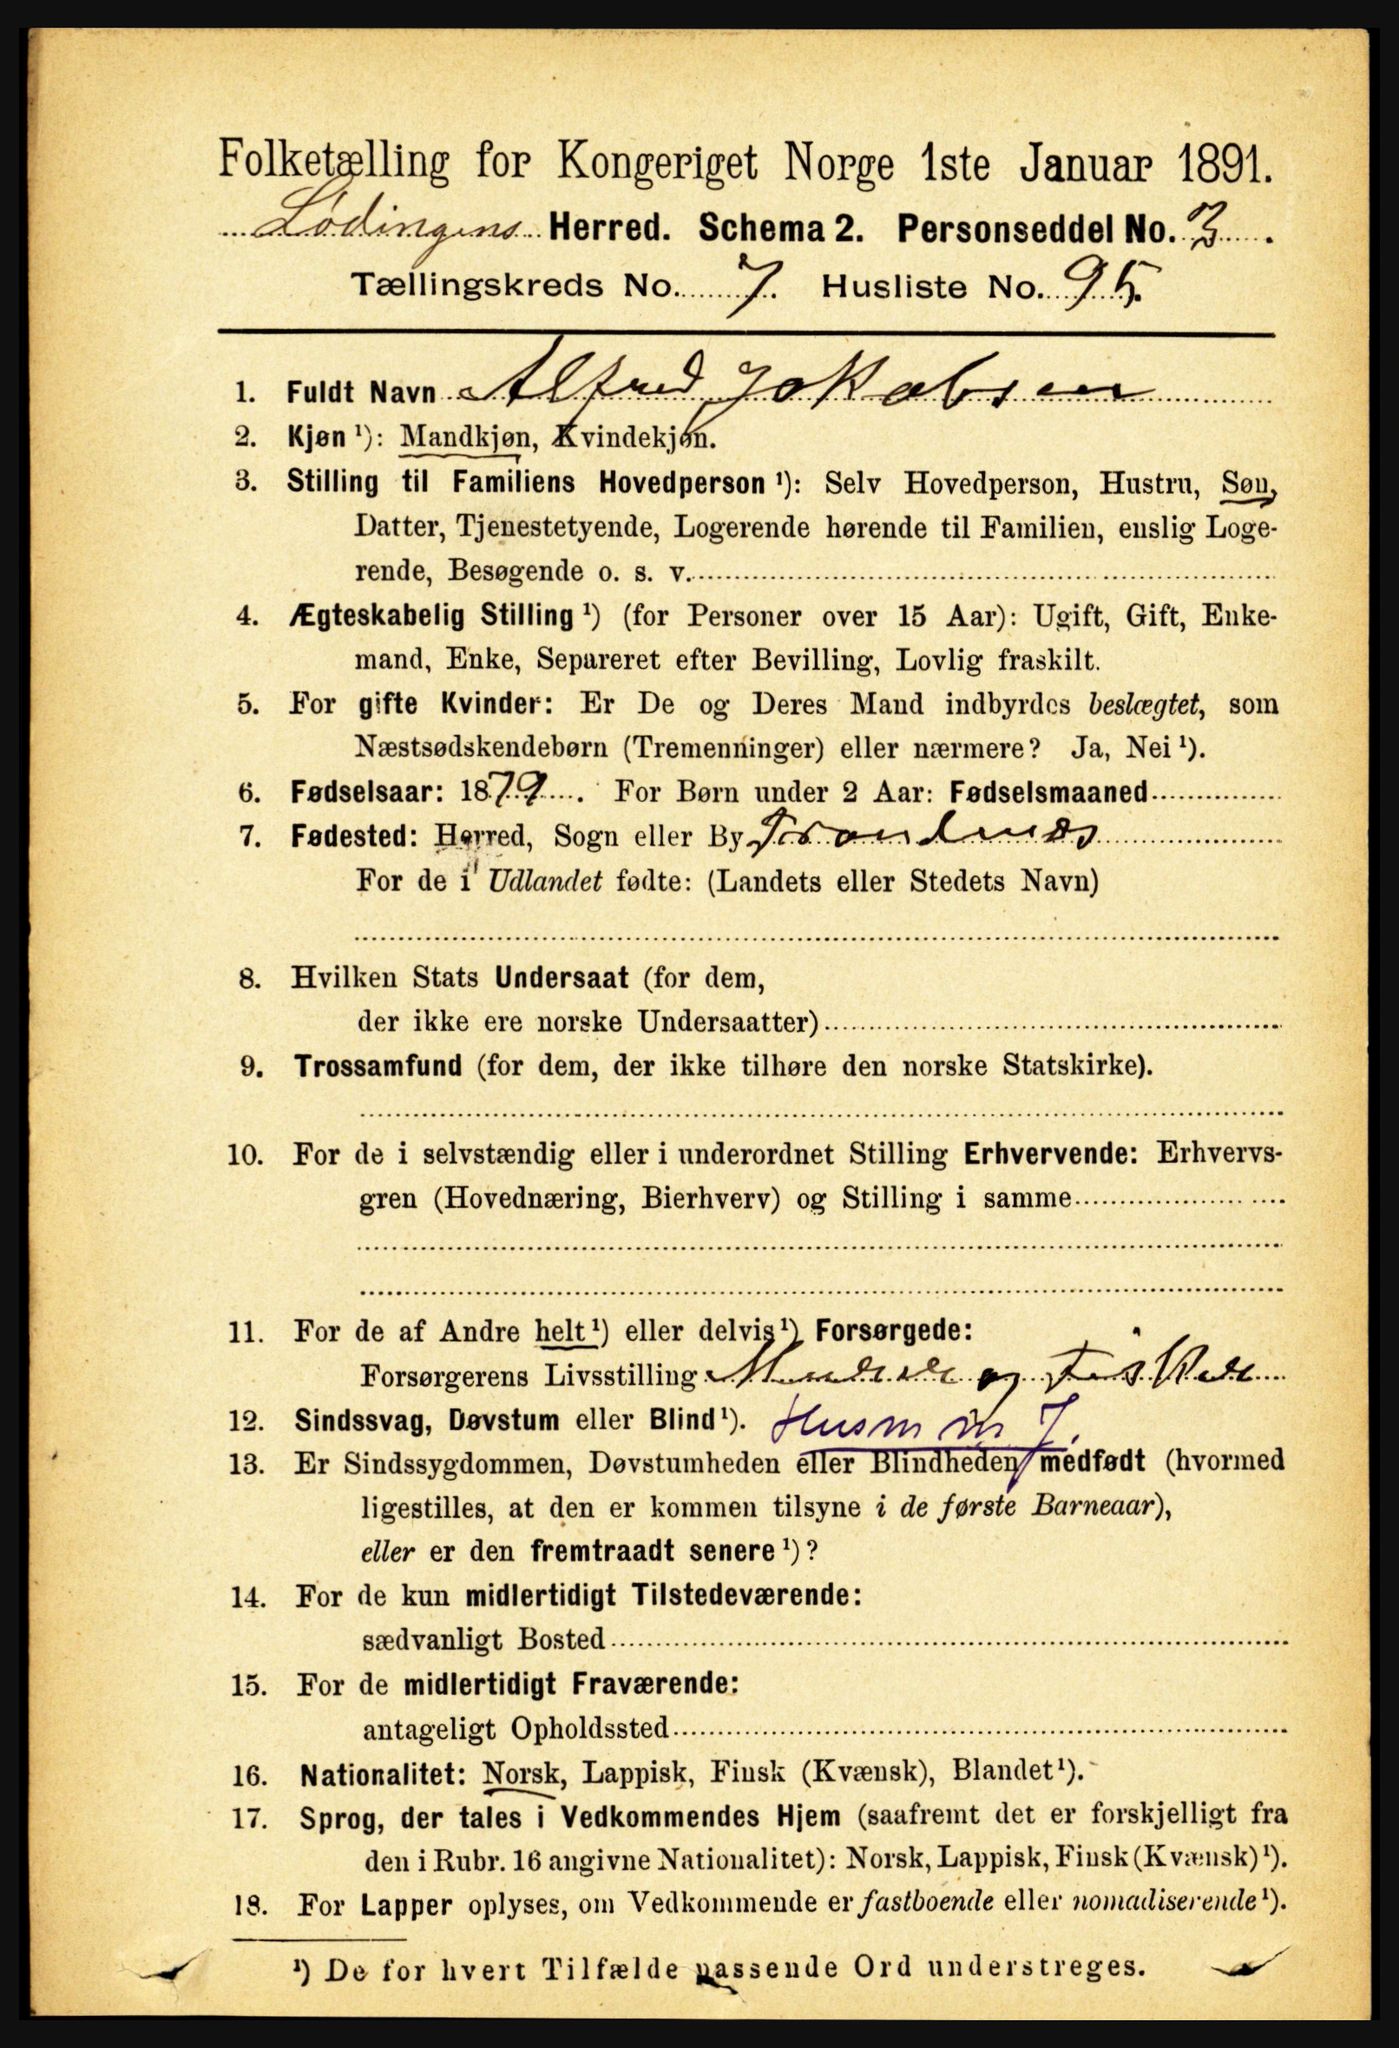 Folketælling for Kongeriget Norge 1ste Januar 1891.
Lødingens Herred. Schema 2. Personseddel No. 3.
Tællingskreds No. 7. Husliste No. 95.
1. Fuldt Navn Alfred Jokobsen
2. Kjøn ¹): Mandkjøn, Kvindekjøn.
3. Stilling til Familiens Hovedperson ¹): Selv Hovedperson, Hustru, Søn,
Datter, Tjenestetyende, Logerende hørende til Familien, enslig Loge-
rende, Besøgende o. s. v.
4. Ægteskabelig Stilling ¹) (for Personer over 15 Aar): Ugift, Gift, Enke-
mand, Enke, Separeret efter Bevilling, Lovlig fraskilt.
5. For gifte Kvinder: Er De og Deres Mand indbyrdes beslægtet, som
Næstsødskendebørn (Tremenninger) eller nærmere? Ja, Nei ¹).
6. Fødselsaar: 1879. For Børn under 2 Aar: Fødselsmaaned
7. Fødested: Herred, Sogn eller By Trondenæs
For de i Udlandet fødte: (Landets eller Stedets Navn)
8. Hvilken Stats Undersaat (for dem,
der ikke ere norske Undersaatter)
9. Trossamfund (for dem, der ikke tilhøre den norske Statskirke).
10. For de i selvstændig eller i underordnet Stilling Erhvervende: Erhvervs-
gren (Hovednæring, Bierhverv) og Stilling i samme
11. For de af Andre helt ¹) eller delvis ¹) Forsørgede:
Forsørgerens Livsstilling og Fisker
12. Sindssvag, Døvstum eller Blind ¹). Husm m J.
13. Er Sindssygdommen, Døvstumheden eller Blindheden medfødt (hvormed
ligestilles, at den er kommen tilsyne i de første Barneaar),
eller er den fremtraadt senere ¹)?
14. For de kun midlertidigt Tilstedeværende:
sædvanligt Bosted
15. For de midlertidigt Fraværende:
antageligt Opholdssted
16. Nationalitet: Norsk, Lappisk, Finsk (Kvænsk), Blandet ¹).
17. Sprog, der tales i Vedkommendes Hjem (saafremt det er forskjelligt fra
den i Rubr. 16 angivne Nationalitet): Norsk, Lappisk, Finsk (Kvænsk) ¹).
18. For Lapper oplyses, om Vedkommende er fastboende eller nomadiserende ¹).
¹) De for hvert Tilfælde passende Ord understreges.